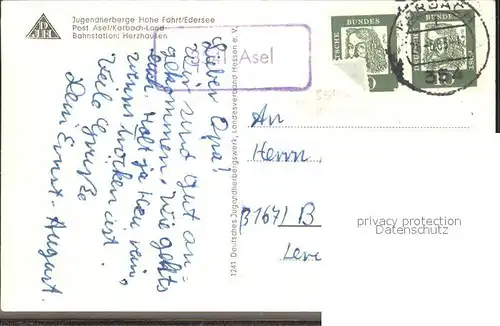 Jugendherberge Hohe Fahrt/Edersee
Post Asel/Korbach-Land
Bahnstation: Herzhausen
Asel
Lieber Opa!
Wir sind gut an-
gekommen. Wie gehts
euch? Holt ja Heu rein,
wenns trocken ist.
Viele Grüße
Dein Ernst-August.
1241 Deutsches Jugendherbergswerk, Landesverband Hessen e. V.
DEUTSCHE BUNDES
DEUTSCHE BUNDES
KORBACH
354
An
Herrn
3167/ B
privacy protection
Datenschutz